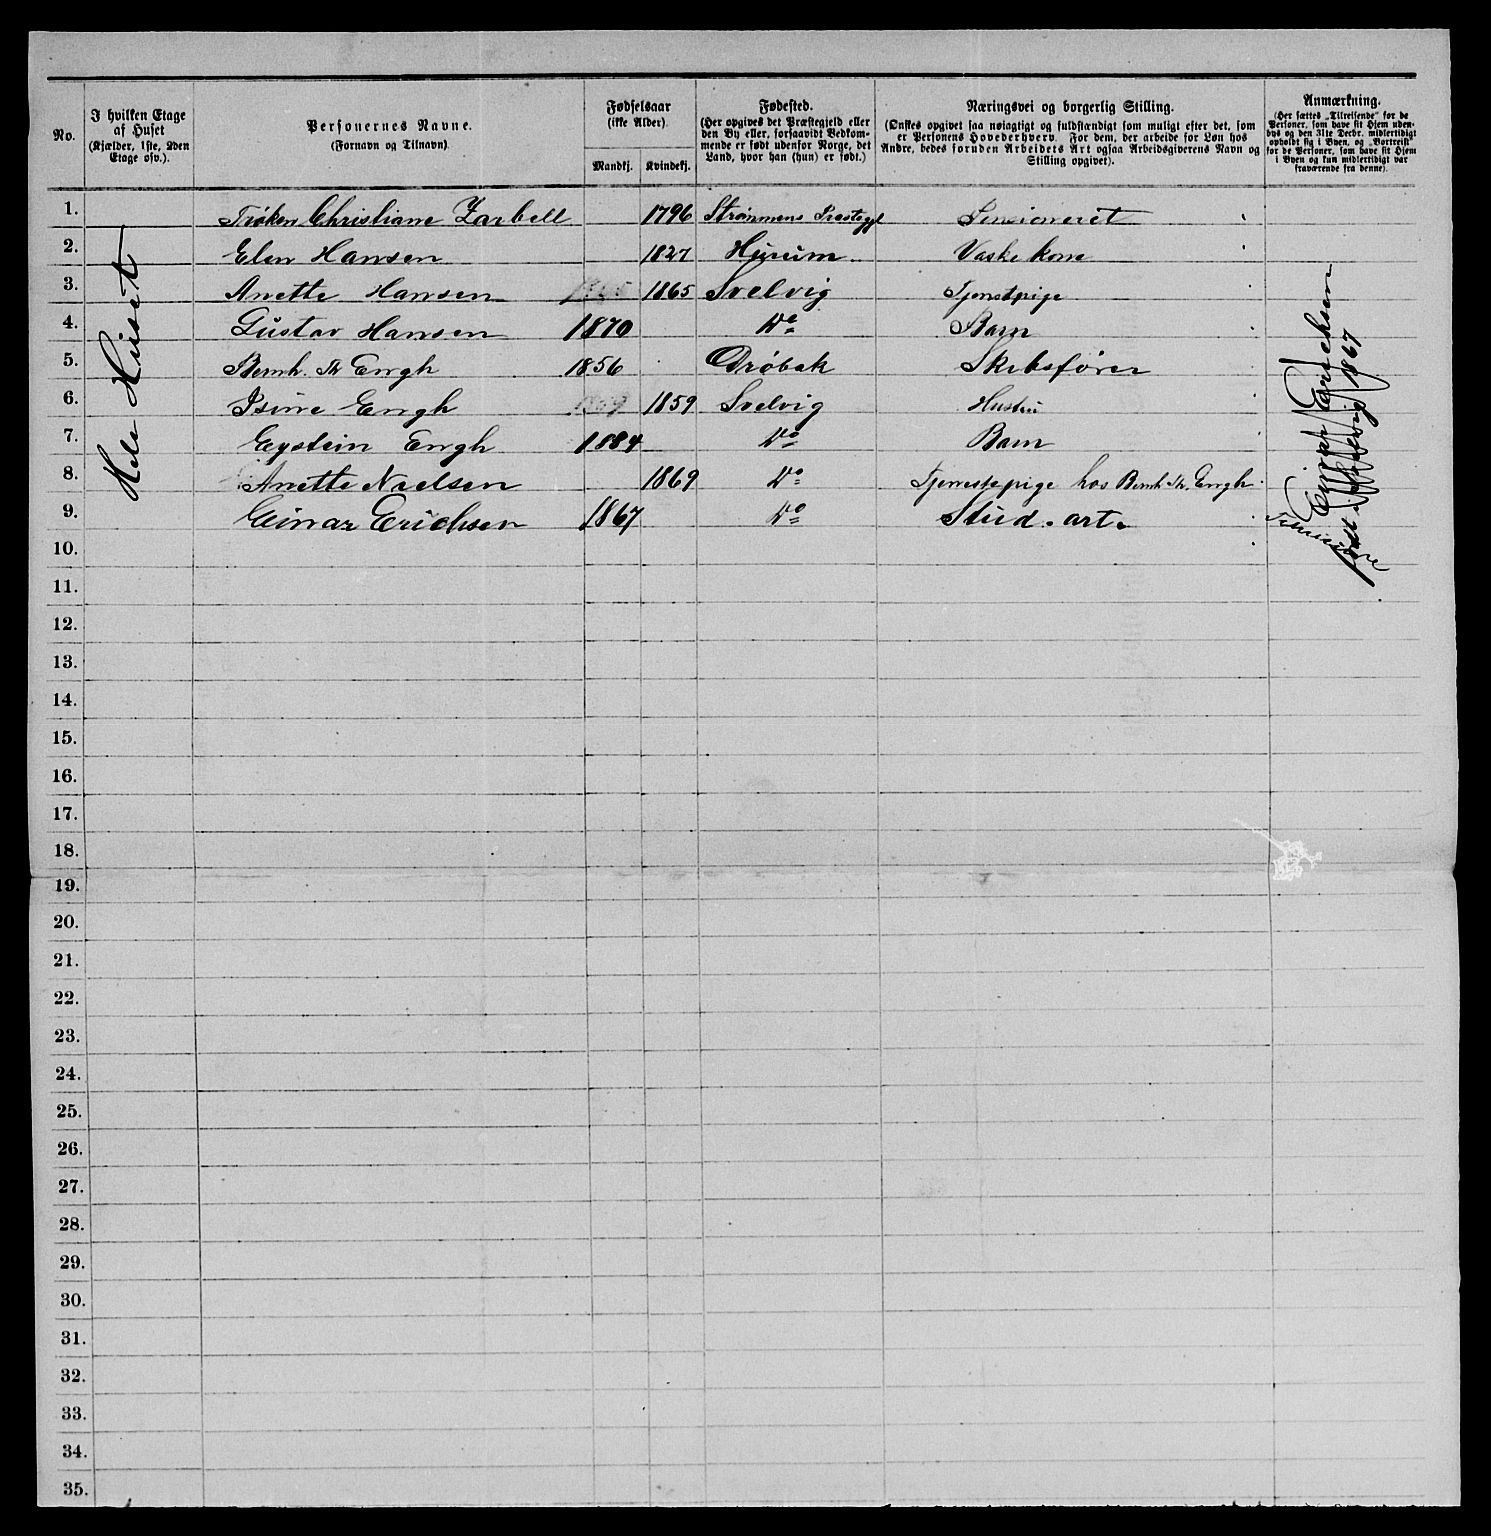 No.
I hvilken Etage af Huset (Kjælder, 1ste, 2den Etage osv.).
Personernes Navne. (Fornavn og Tilnavn).
Fødselsaar (ikke Alder).
Mandkj. Kvindekj.
Fødested. (Her opgives det Præstegjeld eller den By eller, forsaavidt Vedkommende er født udenfor Norge, det Land, hvor han (hun) er født.)
Næringsvei og borgerlig Stilling. (Ønskes opgivet saa nøiagtigt og fuldstændigt som muligt efter det, som er Personens Hovederhverv. For dem, der arbeide for Løn hos Andre, bedes foruden Arbeidets Art ogsaa Arbeidsgiverens Navn og Stilling opgivet).
Anmærkning. (Her sættes „Tilreisende“ for de Personer, som have sit Hjem udenbys og den 31te Decbr. midlertidigt opholdt sig i Byen, og „Bortreist“ for de Personer, som have sit Hjem i Byen og kun midlertidigt var fraværende fra denne).
Hele Huset
1. Frøken Christiane Zarbell 1796 Strømmens Præstegjl Pensioneret
2. Elen Hansen 1827 Hurum Vaskekone
3. Anette Hansen 1865 Svelvig Tjenstpige
4. Gustav Hansen 1870 Do Barn
5. Bernh. Th Engh 1856 Drøbak Skibsfører
6. Isine Engh 1859 Svelvig Hustru
7. Eystein Engh 1884 Do Barn
8. Anette Nielsen 1869 Do Tjenestepige hos Bernh. Th. Engh
9. Einar Erichsen 1867 Do Stud. art.
Tilreisende
Erichsen
født i Svelvig 1867
10.
11.
12.
13.
14.
15.
16.
17.
18.
19.
20.
21.
22.
23.
24.
25.
26.
27.
28.
29.
30.
31.
32.
33.
34.
35.